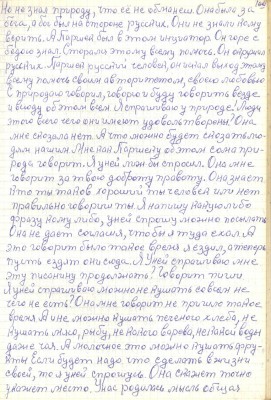 Но не знал природу, что её не обманешь. Она была за
бога, а бог был на стороне русских. Они не знали кому
верить. А Паршек был в этом инициатор. Он горе с
бедою знал. Старался этому всему помочь. Он окружал
русских. Паршек русский человек, он начал выход этому
всему помочь своим авторитетом, своею любовью
с природою говорил, говорю и буду говорить везде
и всюду об этом всем. Я спрашиваю у природы: Люди
этого всего чего они имеют удовлетворены? Она
мне сказала нет. А что можно будет сказать лю-
дям нашим. Мне как Паршеку об этом сама при-
рода говорит. Я у неё или бы спросил. Она мне
говорит за твою доброту правоту. Она знает
что ты таков хороший ты человек или нет
правильно говорит ты. Я напишу какую либо
фразу кому либо, у неё спрошу можно посылать
Она не дает согласия, чтобы я туда ехал. А
это говорит было такое время я ездил, а теперь
пусть ездят они сюда. Я у неё спрашиваю мне
эту писанину продолжать? Говорит пиши
Я у неё спрашиваю можно не кушать совсем не
чего не есть? Она мне говорит не пришло такое
время. А мне можно кушать печеного хлеба, не
кушать мяса, рыбу, не какого варева, не какой воды
даже чая. А молочное это можно кушать фру-
кты. Если будет надо что сделать в жизни
своей, то я у неё спрошусь. Она скажет точно
укажет место. У нас родилась мысль общая